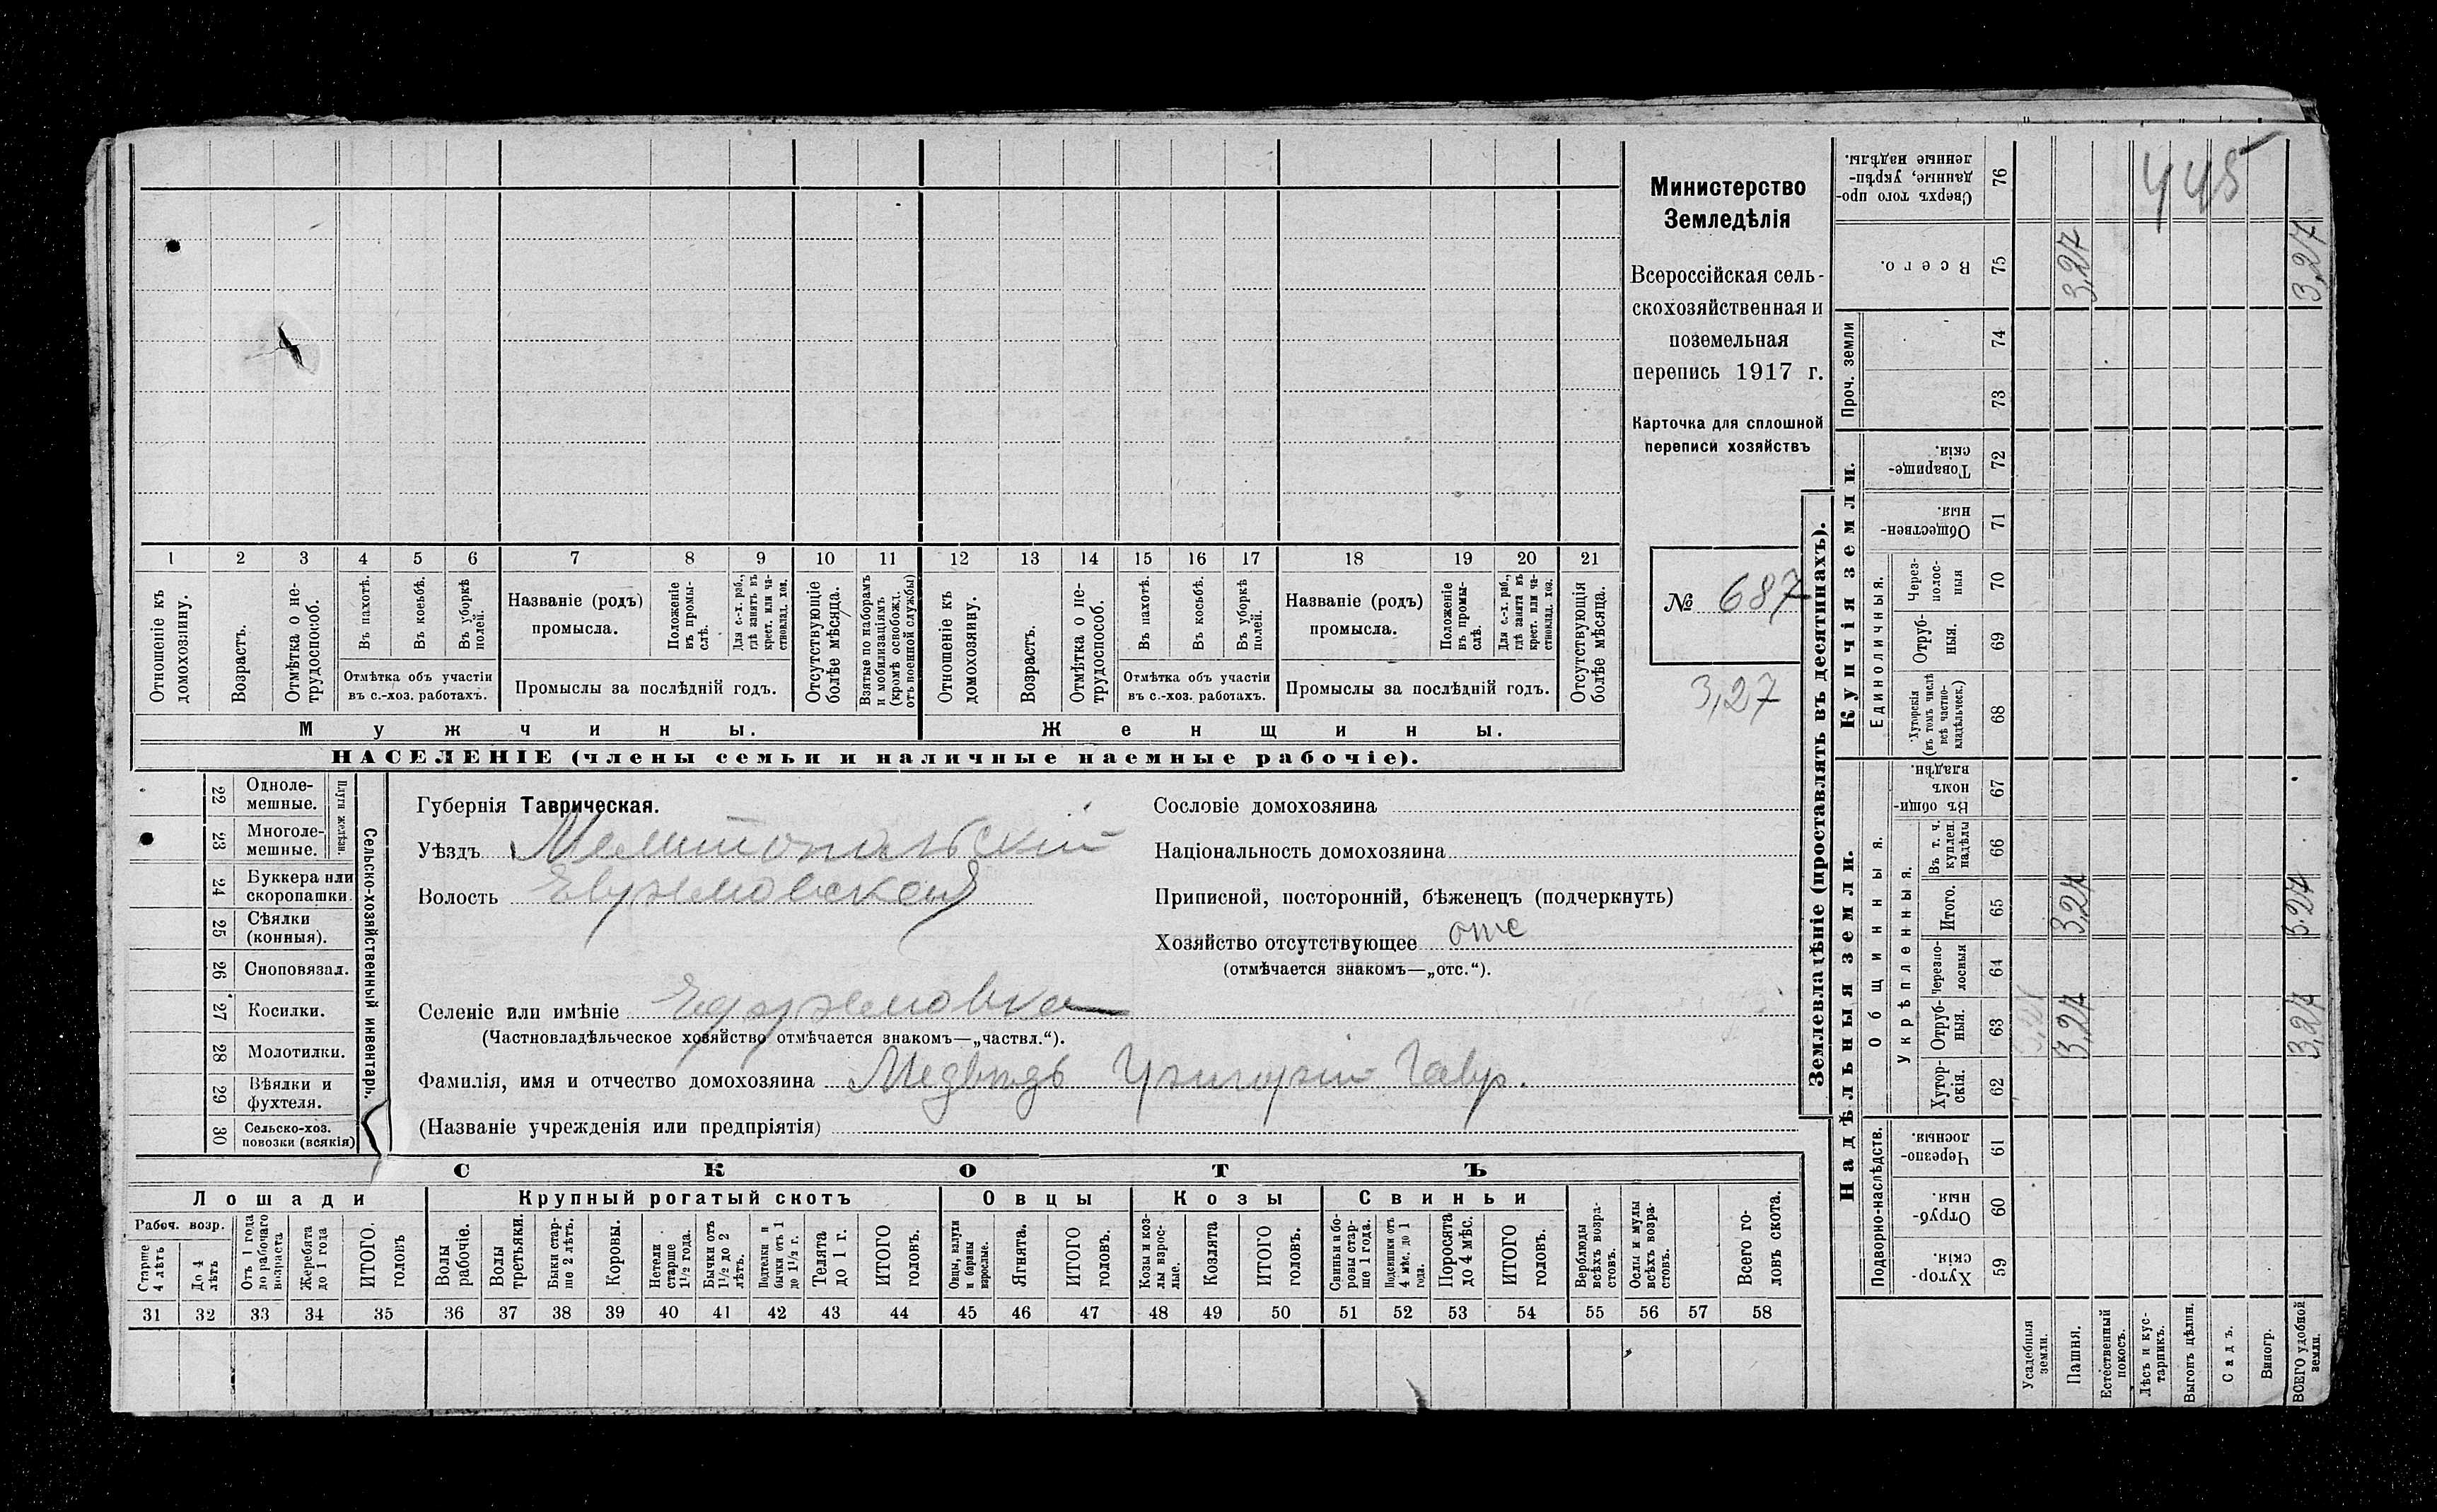 Министерство
Земледѣлія
Всероссійская сель-
скохозяйственная и
поземельная
перепись 1917 г.
Карточка для сплошной
переписи хозяйствъ
№ 687
3,27
1 2 3 4 5 6 7 8 9 10 11 12 13 14 15 16 17 18 19 20 21
Отношеніе къ домохозяину.
Возрастъ.
Отмѣтка о не-трудоспособ.
Въ пахотѣ.
Въ косьбѣ.
Въ уборкѣ полей.
Отмѣтка объ участіи
въ с.-хоз. работахъ.
Названіе (родъ)
промысла.
Положеніе въ промы-слѣ.
Для с.-х. раб., гдѣ занятъ въ крест. или ча-стновлад. хоз.
Промыслы за послѣдній годъ.
Отсутствующіе болѣе мѣсяца.
Взятые по наборамъ и мобилизаціямъ (кромѣ освобожд. отъ военной службы)
Отношеніе къ домохозяину.
Возрастъ.
Отмѣтка о не-трудоспособ.
Въ пахотѣ.
Въ косьбѣ.
Въ уборкѣ полей.
Отмѣтка объ участіи
въ с.-хоз. работахъ.
Названіе (родъ)
промысла.
Положеніе въ промы-слѣ.
Для с.-х. раб., гдѣ занята въ крест. или ча-стновлад. хоз.
Промыслы за послѣдній годъ.
Отсутствующія болѣе мѣсяца.
Мужчины. Женщины.
НАСЕЛЕНІЕ (члены семьи и наличные наемные рабочіе).
Сельско-хозяйственный инвентарь.
Плуги желѣзн.
22 Одноле-мешные.
23 Многоле-мешные.
24 Буккера или скоропашки.
25 Сѣялки (конныя).
26 Сноповязал.
27 Косилки.
28 Молотилки.
29 Вѣялки и фухтеля.
30 Сельско-хоз. повозки (всякія)
Губернія Таврическая.
Уѣздъ Мелитопольскій
Волость Ефремовская
Селеніе или имѣніе Ефремовка
(Частновладѣльческое хозяйство отмѣчается знакомъ—„частвл.“).
Фамилія, имя и отчество домохозяина Медвѣдь Григорій Гавр.
(Названіе учрежденія или предпріятія)
Сословіе домохозяина
Національность домохозяина
Приписной, посторонній, бѣженецъ (подчеркнуть)
Хозяйство отсутствующее отс
(отмѣчается знакомъ—„отс.“).
СКОТЪ
Лошади Крупный рогатый скотъ Овцы Козы Свиньи
Рабоч. возр.
Старше 4 лѣтъ
До 4 лѣтъ
Отъ 1 года до рабочаго возраста
Жеребята до 1 года
ИТОГО головъ
Волы рабочіе.
Волы третьяки.
Быки стар-ше 2 лѣтъ.
Коровы.
Нетели старше 1½ года.
Бычки отъ 1½ до 2 лѣтъ.
Подтелки и бычки отъ 1 до 1½ г.
Телята до 1 г.
ИТОГО головъ.
Овцы, валухи и бараны взрослые.
Ягнята.
ИТОГО головъ.
Козы и коз-лы взрос-лые.
Козлята
ИТОГО головъ.
Свиньи и бо-ровы стар-ше 1 года.
Подсвинки отъ 4 мѣс. до 1 года.
Поросята до 4 мѣс.
ИТОГО головъ.
Верблюды всѣхъ возра-стовъ.
Ослы и мулы всѣхъ возра-стовъ.
Всего го-ловъ скота.
31 32 33 34 35 36 37 38 39 40 41 42 43 44 45 46 47 48 49 50 51 52 53 54 55 56 57 58
Землевладѣніе (проставлять въ десятинахъ).
Надѣльныя земли. Купчія земли. Проч. земли
Подворно-наслѣдств.
Общинныя.
Укрѣпленныя.
Единоличныя.
Хутор-скія. 59
Отруб-ныя. 60
Черезпо-лосныя. 61
Хутор-скія. 62
Отруб-ныя. 63
Черезпо-лосныя 64
Итого. 65
Въ т. ч. куплен. надѣлы 66
Въ общи-номъ владѣн. 67
Хуторскія (въ томъ числѣ всѣ частно-владѣльческ.) 68
Отруб-ныя. 69
Через-полос-ныя 70
Обществен-ныя. 71
Товарище-скія. 72
73
74
Всего. 75
Сверхъ того про-данные, укрѣп-ленные надѣлы. 76
Усадебныя земли.
Пашня. 3,27 3,27 3,27
Естественный покосъ.
Лѣсъ и кус-тарникъ.
Выгонъ цѣлин.
Садъ.
Виногр.
ВСЕГО удобной земли. 3,27 3,27 3,27
445